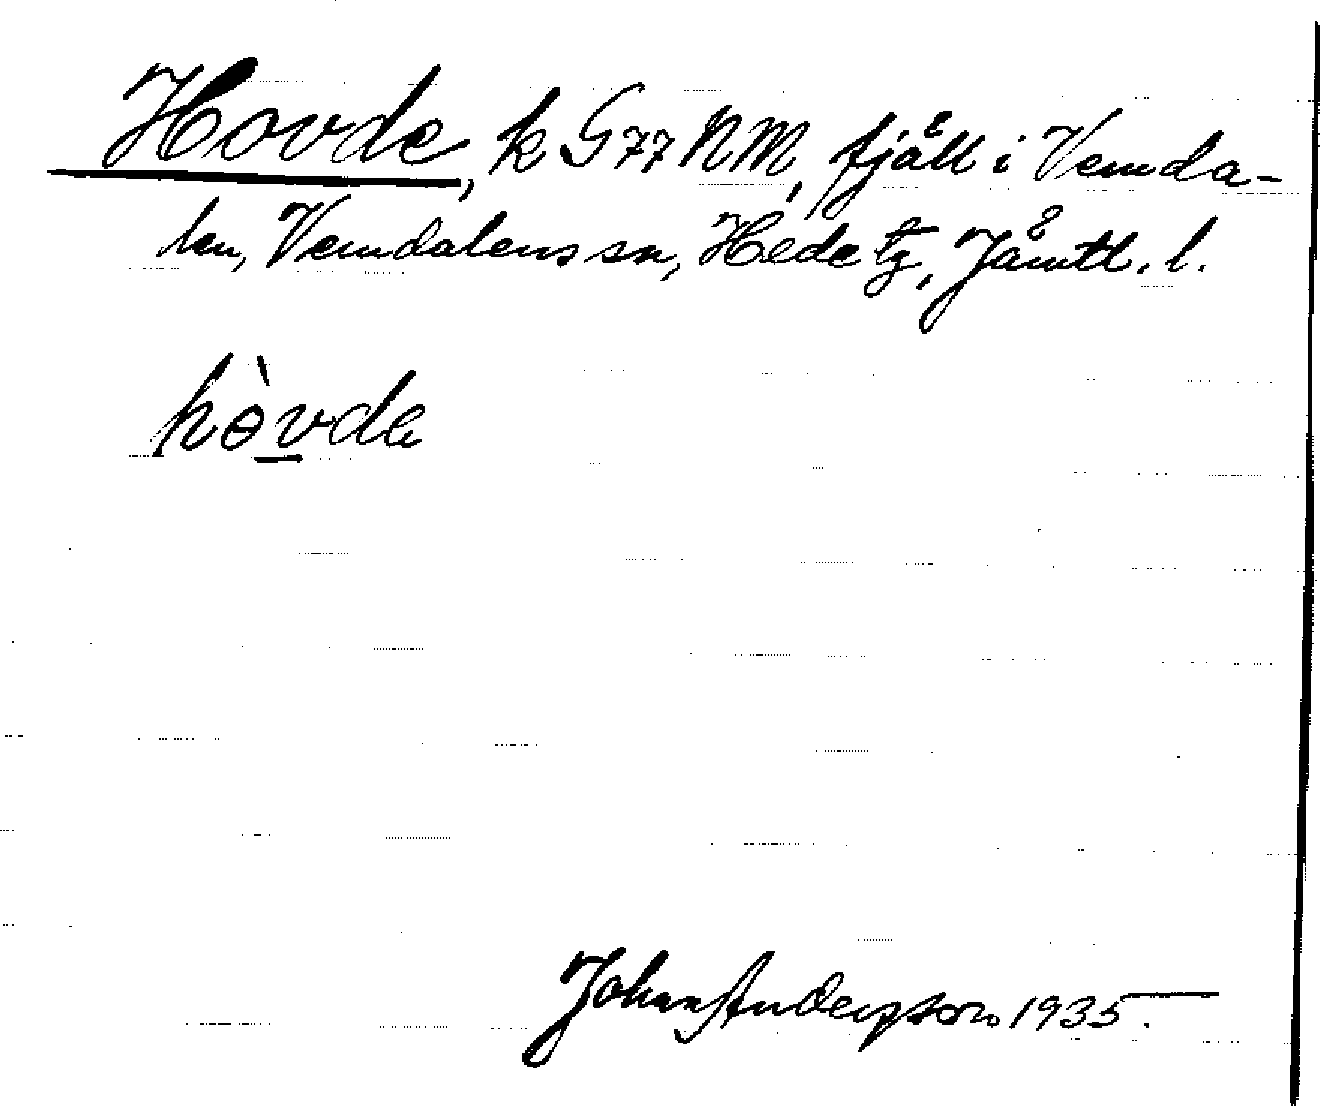 Hovde, k G77 NM, fjäll i Vemda-
len, Vemdalens sn, Hede tg, Jämtl. l.
hɵ̀vda
Johan Andersson 1935.